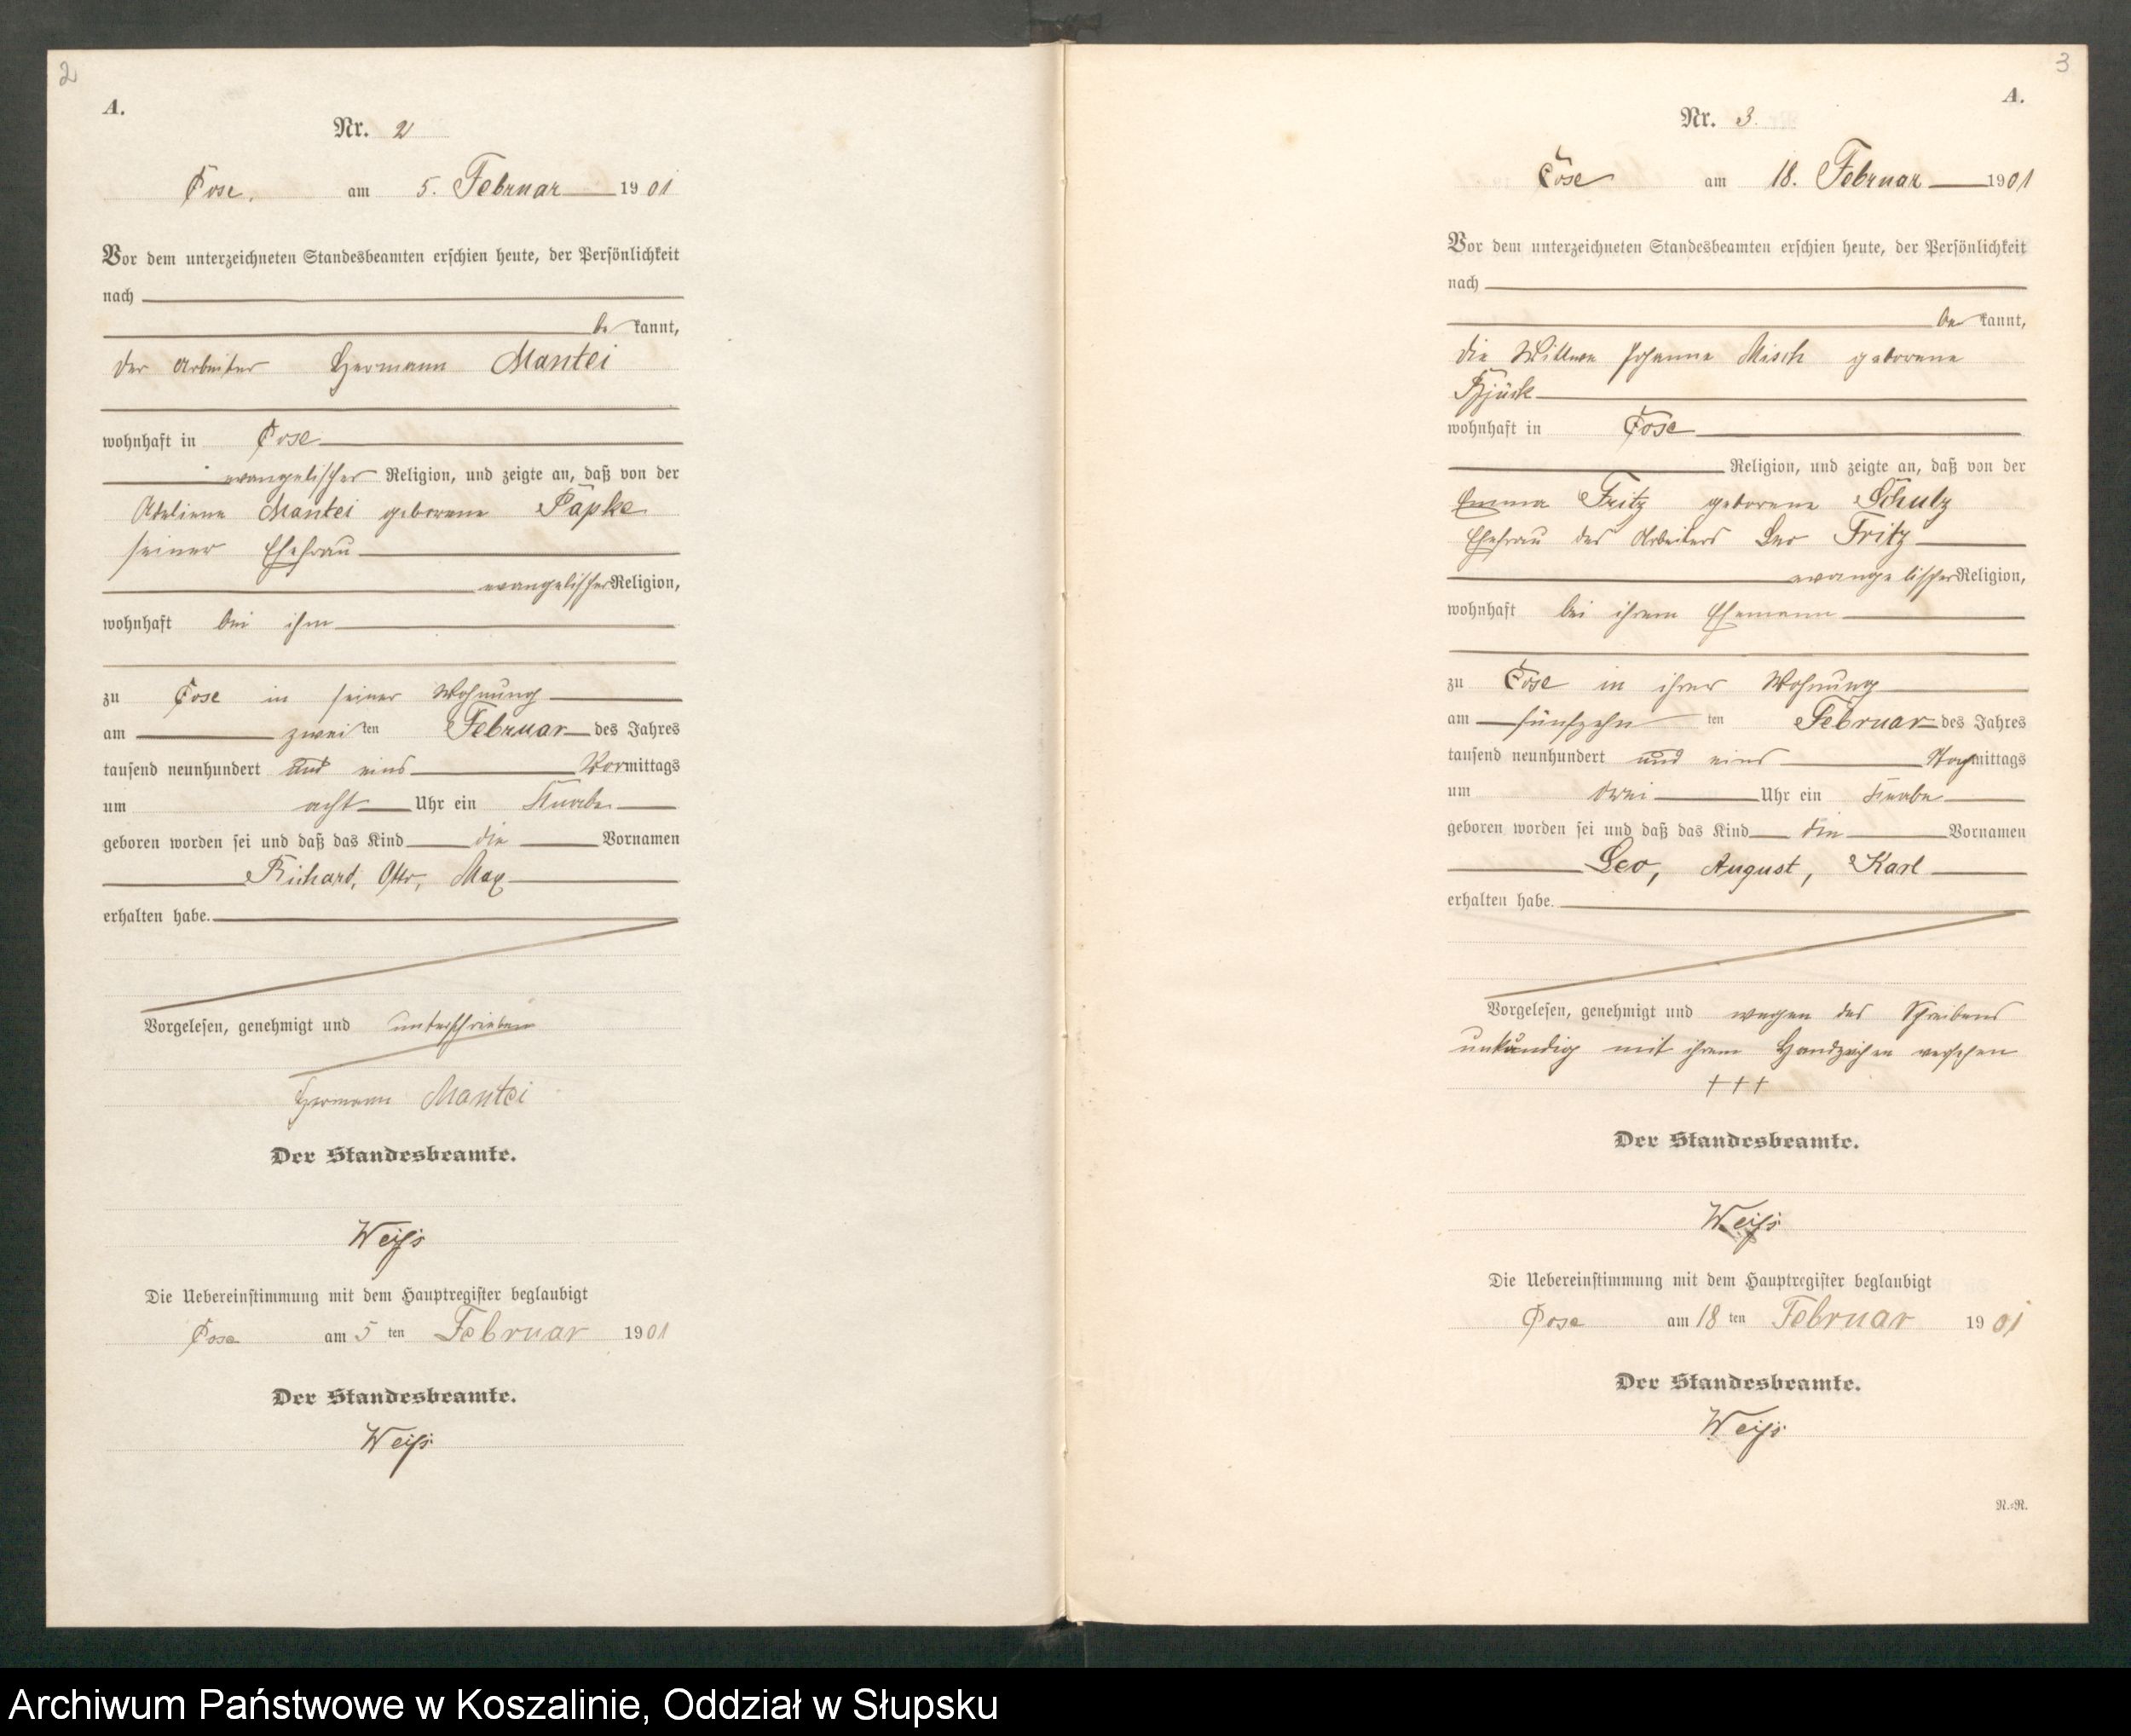 2
A.
Nr. 2
am 5. Februar 1901
Vor dem unterzeichneten Standesbeamten erschien heute, der Persönlichkeit
nach
be kannt,
der Arbeiter Hermann Mantei
wohnhaft in
evangelischer Religion, und zeigte an, daß von der
Mantei geborene Papke
seiner Ehefrau
evangelischer Religion,
wohnhaft bei ihm
zu in seiner Wohnung
am zweiten Februar des Jahres
tausend neunhundert und eins Vormittags
um acht Uhr ein Knabe
geboren worden sei und daß das Kind die Vornamen
Richard, Otto, Max
erhalten habe.
Vorgelesen, genehmigt und unterschrieben
Hermann Mantei
Der Standesbeamte.
Weiß
Die Uebereinstimmung mit dem Hauptregister beglaubigt
am 5 ten Februar 1901
Der Standesbeamte.
Weiß
3
A.
Nr. 3.
am 18. Februar 1901
Vor dem unterzeichneten Standesbeamten erschien heute, der Persönlichkeit
nach
be kannt,
die Wittwe Johanne Misch geborene
wohnhaft in
Religion, und zeigte an, daß von der
Emma Fritz geborene Schulz
Ehefrau des Arbeiters Leo Fritz
evangelischer Religion,
wohnhaft bei ihrem Ehemann
zu in ihrer Wohnung
am fünfzehn ten Februar des Jahres
tausend neunhundert und eins Nachmittags
um Uhr ein Knabe
geboren worden sei und daß das Kind die Vornamen
Leo, August, Karl
erhalten habe.
Vorgelesen, genehmigt und wegen des Schreibens
unkundig mit ihrem Handzeichen versehen
+++
Der Standesbeamte.
Weiß
Die Uebereinstimmung mit dem Hauptregister beglaubigt
am 18 ten Februar 1901
Der Standesbeamte.
Weiß
N.-N.
Archiwum Państwowe w Koszalinie, Oddział w Słupsku